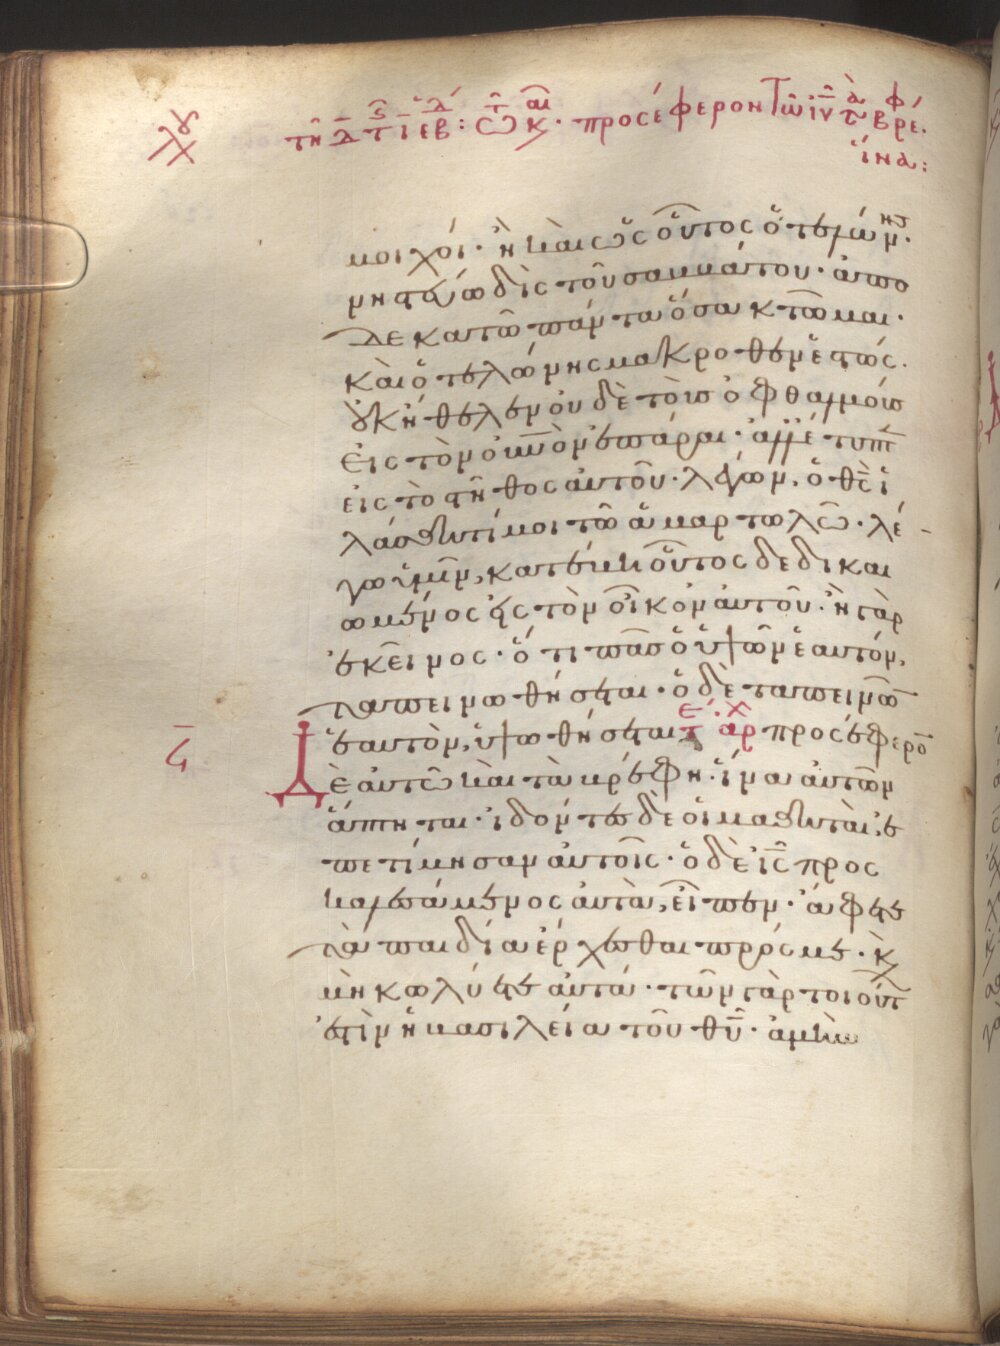 τῆ προσέφερον τῶ ιυ τὰ βρέφ
ἵνα:
μοιχοί· ἢ καὶ ὡς οὗτος ὁ τελώνης·
νηστεύω δὶς τοῦ σαββάτου· ἀπο
δεκατῶ πάντα ὅσα κτῶμαι·
καὶ ὁ τελώνης μακρόθεν ἑστώς·
οὐκ ἤθελεν οὐδὲ τοὺς ὀφθαλμοὺς
εἰς τὸν οὐνὸν ἐπάραι· ἀλλ' ἔτυπτ
εἰς τὸ στῆθος αὐτοῦ· λέγων, ὁ θς ἱ
λάσθητί μοι τῶ ἁμαρτωλῶ· λέ
γω ὑμῖν, κατέβη οὗτος δεδικαι
ωμένος εἰς τὸν οἶκον αὐτοῦ· ἢ γὰρ
ἐκεῖνος· ὅτι πᾶς ὁ ὑψῶν ἑαυτόν,
ταπεινωθήσεται· ὁ δὲ ταπεινῶν
ἑαυτὸν, ὑψωθήσεται προσέφερον
δὲ αὐτῶ καὶ τὰ βρέφη· ἵνα αὐτῶν
ἅπτηται· ἰδόντες δὲ οἱ μαθηταὶ, ἐ
πετίμησαν αὐτοῖς· ὁ δὲ ις προσ
καλεσάμενος αὐτὰ, εἶπεν· ἄφετε
τὰ παιδία ἔρχεσθαι πρός με· κ
μὴ κωλύετε αὐτά· τῶν γὰρ τοιούτ
ἐστὶν ἡ βασιλεία τοῦ θυ· ἀμὴν